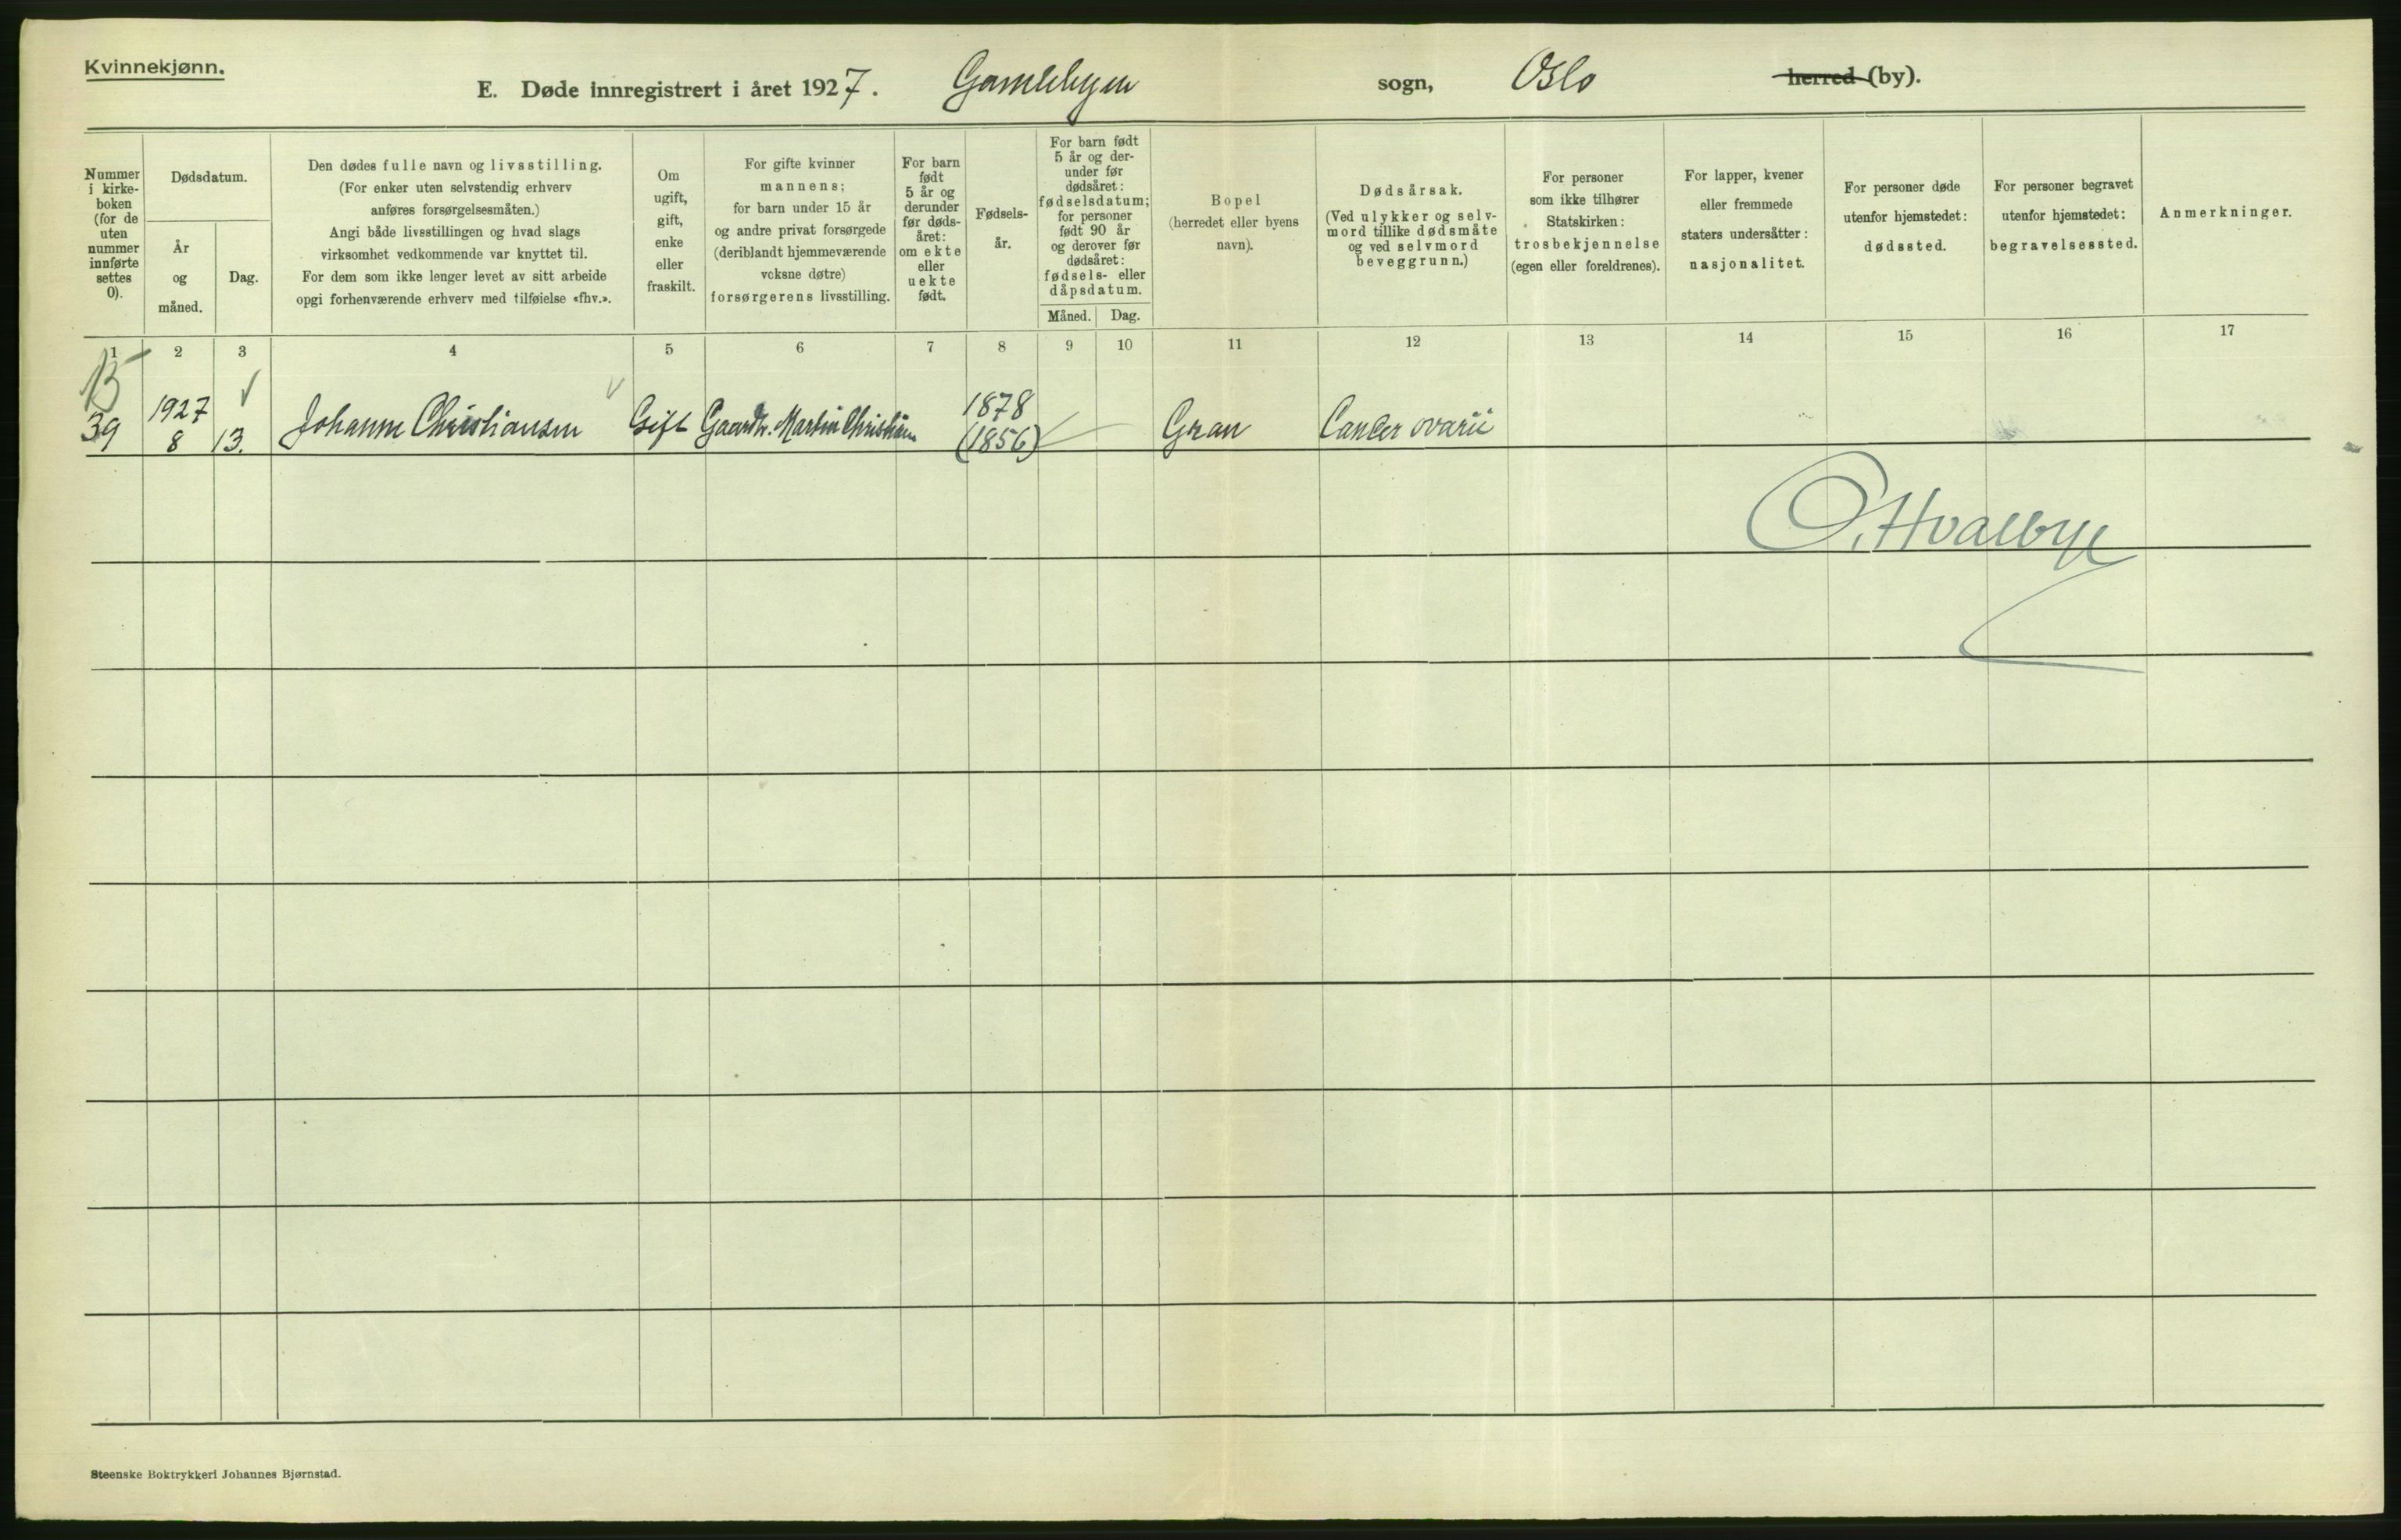 Kvinnekjønn.
E. Døde innregistrert i året 1927. Gamlebyen sogn, Oslo herred (by).
Nummer i kirke-boken (for de uten nummer innførte settes 0).
Dødsdatum.
År og måned.
Dag.
Den dødes fulle navn og livsstilling.
(For enker uten selvstendig erhverv
anføres forsørgelsesmåten.)
Angi både livsstillingen og hvad slags
virksomhet vedkommende var knyttet til.
For dem som ikke lenger levet av sitt arbeide
opgi forhenværende erhverv med tilføielse «fhv.».
Om
ugift,
gift,
enke
eller
fraskilt.
For gifte kvinner
mannens;
for barn under 15 år
og andre privat forsørgede
(deriblandt hjemmeværende
voksne døtre)
forsørgerens livsstilling.
For barn
født
5 år og
derunder
før døds-
året:
om ekte
eller
uekte
født.
Fødsels-
år.
For barn født
5 år og der-
under før
dødsåret:
fødselsdatum;
for personer
født 90 år
og derover før
dødsåret:
fødsels- eller
dåpsdatum.
Måned. Dag.
Bopel
(herredet eller byens
navn).
Dødsårsak.
(Ved ulykker og selv-
mord tillike dødsmåte
og ved selvmord
beveggrunn.)
For personer
som ikke tilhører
Statskirken:
trosbekjennelse
(egen eller foreldrenes).
For lapper, kvener
eller fremmede
staters undersåtter:
nasjonalitet.
For personer døde
utenfor hjemstedet:
dødssted.
For personer begravet
utenfor hjemstedet:
begravelsessted.
Anmerkninger.
1 2 3 4 5 6 7 8 9 10 11 12 13 14 15 16 17
1927 1878
39 8 13. Johanne Christiansen Gift Gaardbr. Martin Christians (1856) Gran Cancer ovarii
O. Hvalbye
Steenske Boktrykkeri Johannes Bjørnstad.